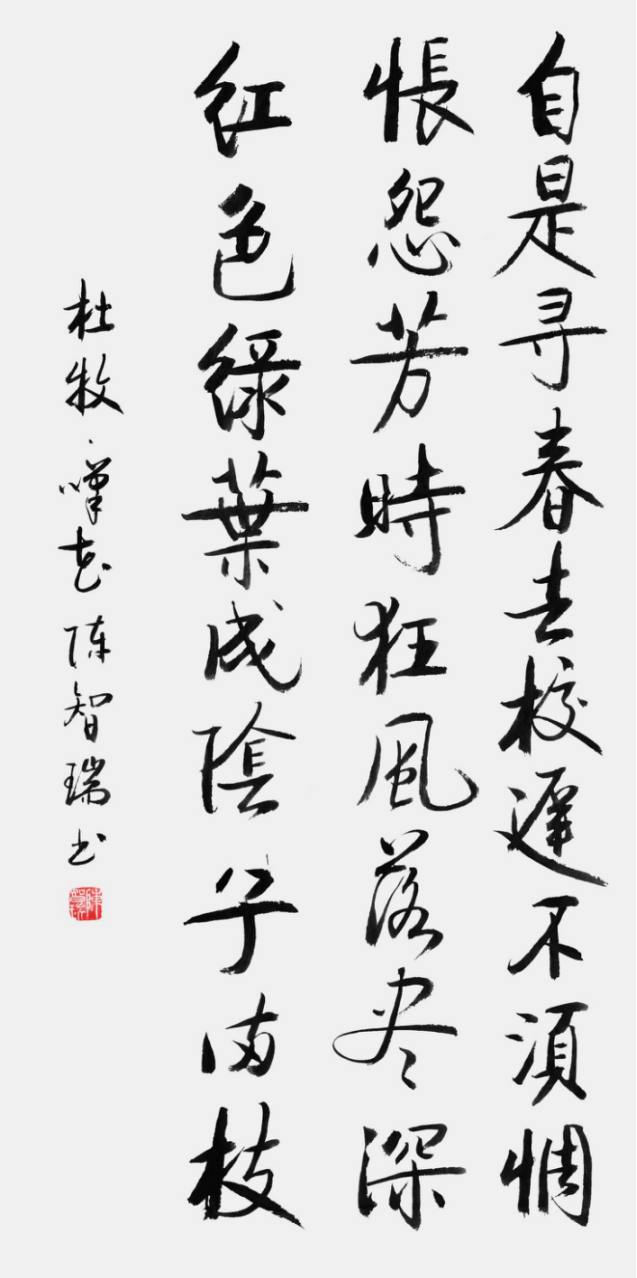 自是寻春去校遲不須惆
悵怨芳時狂風落尽深
紅色綠葉成陰子滿枝
杜牧·嘆花陈智瑞书